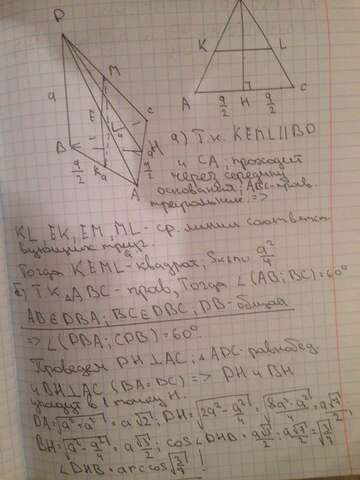 D
M
a
E
L
C
B
H
a/2
K
a/2
A
K
L
A
a/2
H
a/2
C
а) Т.к. KEML||BD
и CA, проходит
через середину
основания; ABC-прав.
треугольние. =>
KL, EK, EM, ML - ср. линии соответст-
вующих треуг.
Тогда KEML - квадрат, Sкв a²/4
б) Т.к. △ABC - прав, тогда ∠(AB; BC) = 60°
AB∈DBA; BC∈DBC; DB - общая
=> ∠(DBA; CDB) = 60°.
Проведем DH⊥AC; △ADC - равнобед
и BH⊥AC (BA = BC) => DH и BH
в 1 точку H.
DA = √(a² + a²) = a√2; DH = √(2a² - a²/4) = √((8a² - a²)/4) = a√7/2
BH = √(a² - a²/4) = a√3/2; cos∠DHB = a√3/2 : a√7/2 = √(3/7)
∠DHB = arccos√(3/7)!